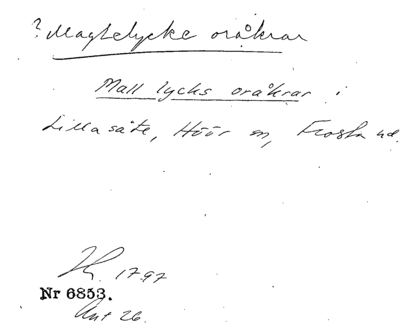 ? Magtelycke oråkrar
Mall lycks oråkrar i
Lillasäte, Höör sn, Frosta hd.
1797
Nr 6853.
Ant 26.